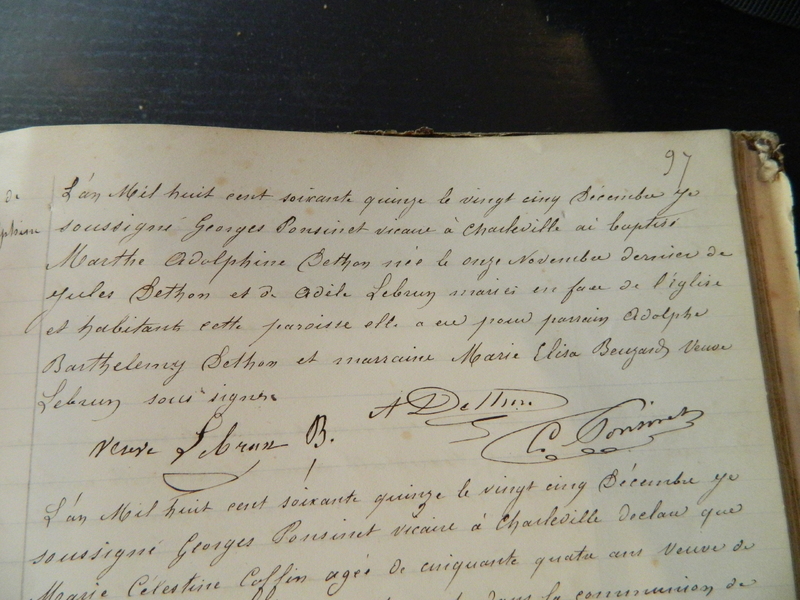 97
de
phine
L'an Mil huit cent soixante quinze le vingt cinq Décembre je
soussigné Georges Ponsinet vicaire à Charleville ai baptisé
Marthe Adolphine Dethon née le onze Novembre dernier de
Jules Dethon et de Adèle Lebrun mariés en face de l'église
et habitants cette paroisse elle a eu pour parrain Adolphe
Barthelemy Dethon et marraine Marie Elisa Veuve
Lebrun sous signés
A Dethon
veuve Lebrun B.
G. Ponsinet
L'an Mil huit cent soixante quinze le vingt cinq Décembre je
soussigné Georges Ponsinet vicaire à Charleville declare que
Marie Célestine Coffin agée de cinquante quatre ans Veuve de
dans la communion de